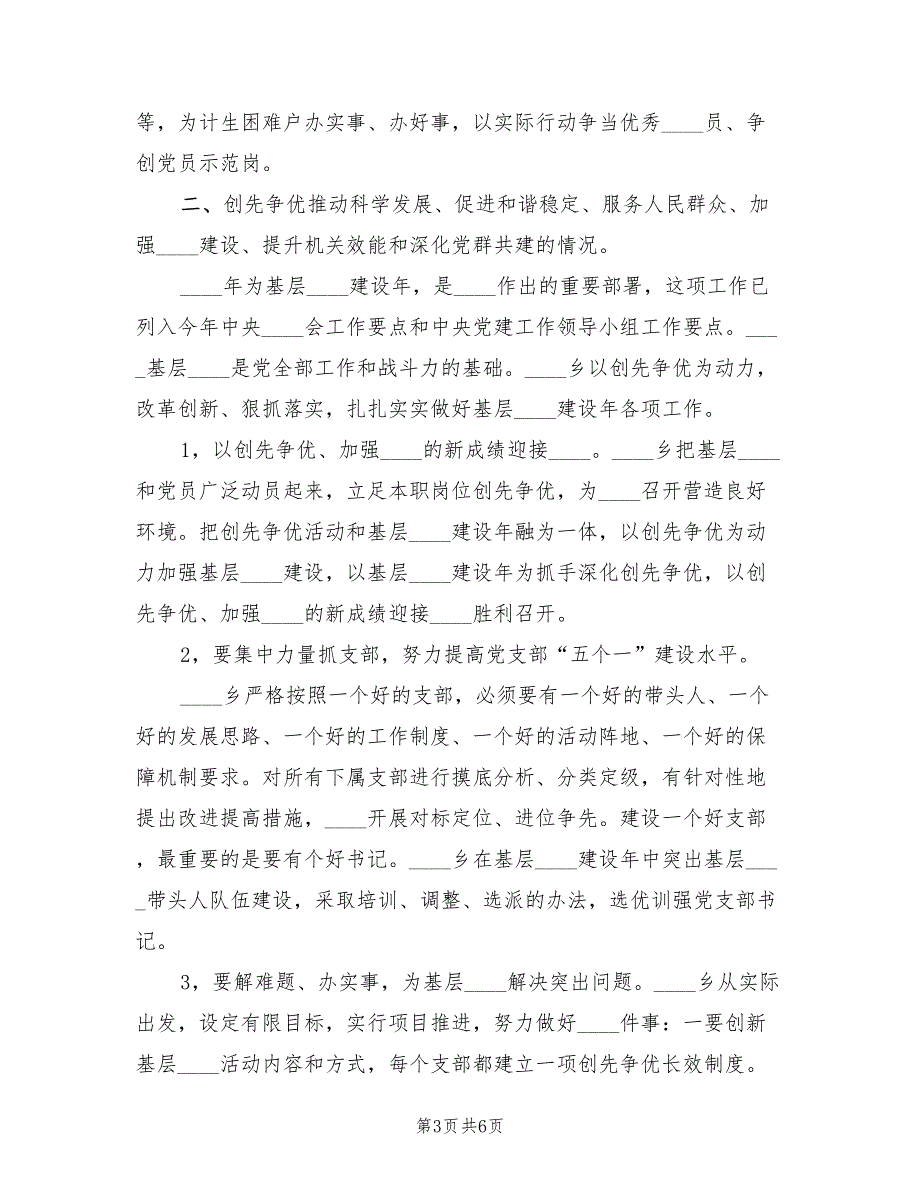 等，为计生困难户办实事、办好事，以实际行动争当优秀____员、争
创党员示范岗。
二、创先争优推动科学发展、促进和谐稳定、服务人民群众、加
强____建设、提升机关效能和深化党群共建的情况。
____年为基层____建设年，是____作出的重要部署，这项工作已
列入今年中央____会工作要点和中央党建工作领导小组工作要点。___
_基层____是党全部工作和战斗力的基础。____乡以创先争优为动力，
改革创新、狠抓落实，扎扎实实做好基层____建设年各项工作。
1，以创先争优、加强____的新成绩迎接____。____乡把基层____
和党员广泛动员起来，立足本职岗位创先争优，为____召开营造良好
环境。把创先争优活动和基层____建设年融为一体，以创先争优为动
力加强基层____建设，以基层____建设年为抓手深化创先争优，以创
先争优、加强____的新成绩迎接____胜利召开。
2，要集中力量抓支部，努力提高党支部“五个一”建设水平。
____乡严格按照一个好的支部，必须要有一个好的带头人、一个
好的发展思路、一个好的工作制度、一个好的活动阵地、一个好的保
障机制要求。对所有下属支部进行摸底分析、分类定级，有针对性地
提出改进提高措施，____开展对标定位、进位争先。建设一个好支部
，最重要的是要有个好书记。____乡在基层____建设年中突出基层___
_带头人队伍建设，采取培训、调整、选派的办法，选优训强党支部书
记。
3，要解难题、办实事，为基层____解决突出问题。____乡从实际
出发，设定有限目标，实行项目推进，努力做好____件事：一要创新
基层____活动内容和方式，每个支部都建立一项创先争优长效制度。
第3页共6页